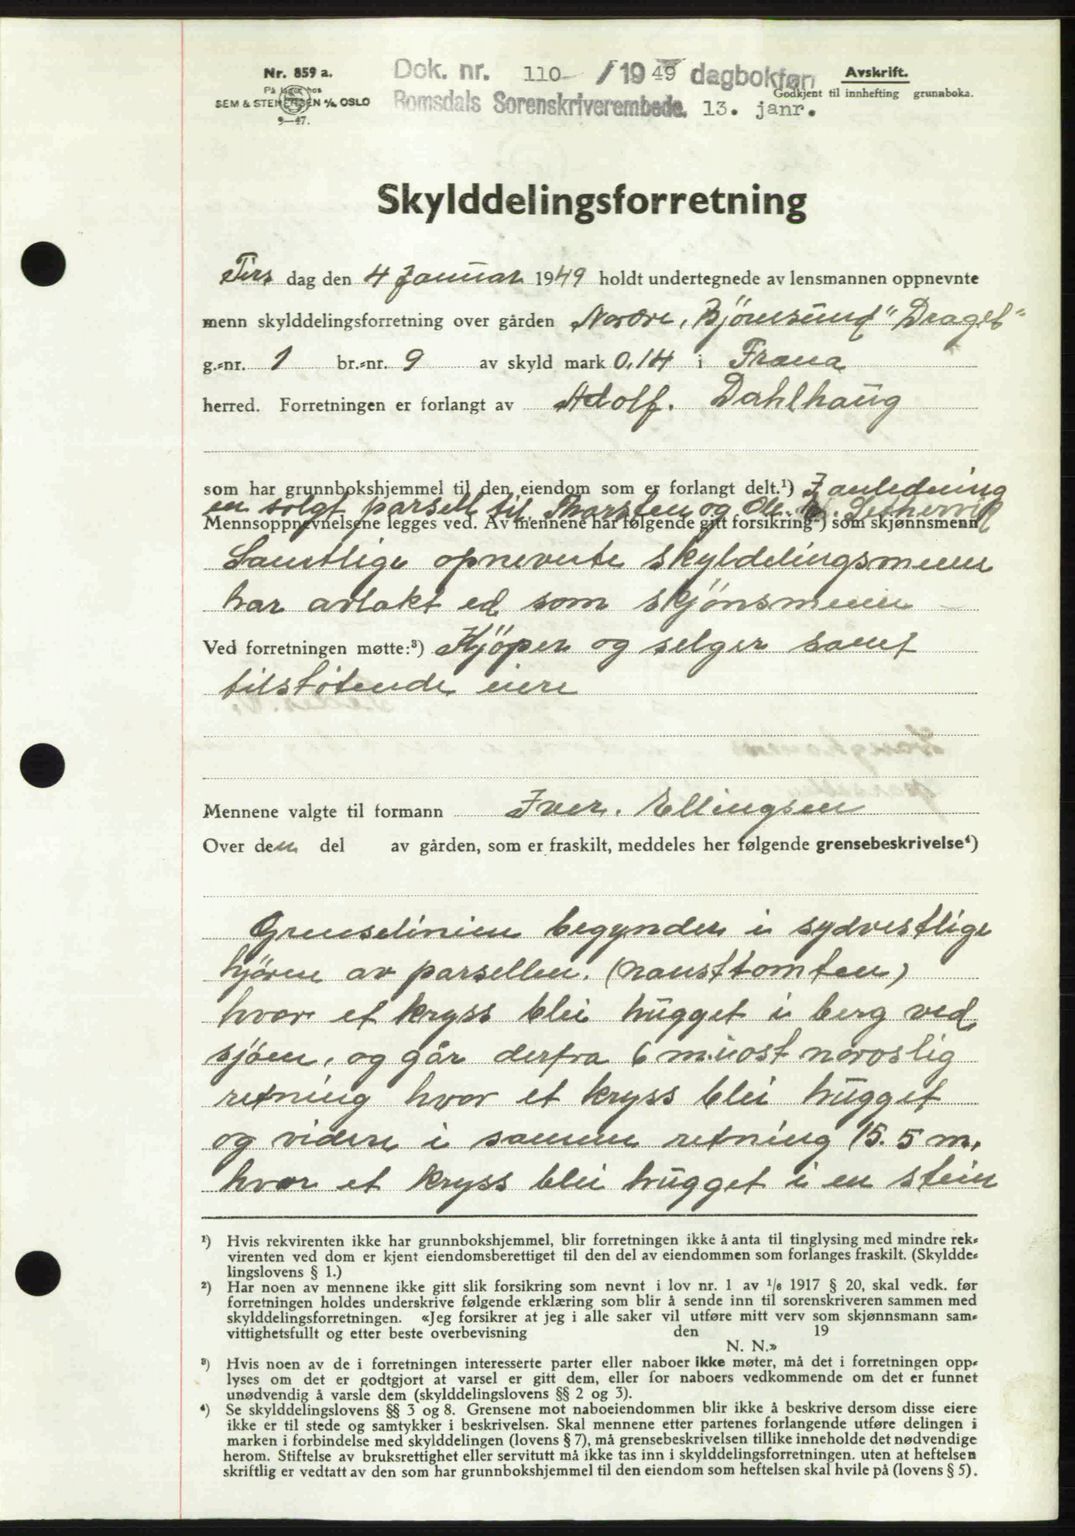 Nr. 859 a.
På lager hos
SEM & STENERSEN A/S, OSLO
9—47.
Dok. nr. 110 / 1949 dagbokført
Romsdals Sorenskriverembede. 13. janr.
Avskrift.
Godkjent til innhefting grunnboka.
Skylddelingsforretning
Tirs dag den 4 Januar 1949 holdt undertegnede av lensmannen oppnevnte
menn skylddelingsforretning over gården Nordre, Björnsund "Draget"
g.-nr. 1 br.-nr. 9 av skyld mark 0,14 i Fræna
herred. Forretningen er forlangt av Adolf. Dahlhaug
som har grunnbokshjemmel til den eiendom som er forlangt delt.¹) I anledning
en solgt parsell til Thorsten og Ole
Mennsoppnevnelsene legges ved. Av mennene har følgende gitt forsikring²) som skjønnsmenn
Samtlige opnevnte skylddelingsmenn
har avlakt ed som skjønsmenn
Ved forretningen møtte:³) Kjöper og selger samt
tilstøtende eiere
Mennene valgte til formann Iver. Ellingsen
Over den del av gården, som er fraskilt, meddeles her følgende grensebeskrivelse⁴)
Grenselinien begynder i sydvestlige
hjörne av parsellen. (nausttomten)
hvor et kryss blei hugget i berg ved
sjöen, og går derfra 6 m. i ost nordostlig
retning hvor et kryss blei hugget
og videre i samme retning 15.5 m.
hvor et kryss blei hugget i en stein
¹) Hvis rekvirenten ikke har grunnbokshjemmel, blir forretningen ikke å anta til tinglysing med mindre rek-
virenten ved dom er kjent eiendomsberettiget til den del av eiendommen som forlanges fraskilt. (Skyldde-
lingslovens § 1.)
²) Har noen av mennene ikke gitt slik forsikring som nevnt i lov nr. 1 av ¹/₆ 1917 § 20, skal vedk. før
forretningen holdes underskrive følgende erklæring som blir å sende inn til sorenskriveren sammen med
skylddelingsforretningen. «Jeg forsikrer at jeg i alle saker vil utføre mitt verv som skjønnsmann sam-
vittighetsfullt og etter beste overbevisning den 19
N. N.»
³) Hvis noen av de i forretningen interesserte parter eller naboer ikke møter, må det i forretningen opp-
lyses om det er godtgjort at varsel er gitt dem, eller for naboers vedkommende om det er funnet
unødvendig å varsle dem (skylddelingslovens §§ 2 og 3).
⁴) Se skylddelingslovens §§ 3 og 8. Grensene mot naboeiendommen blir ikke å beskrive dersom disse eiere
ikke er til stede og samtykker i beskrivelsen. Skal mennene etter partenes forlangende utføre delingen i
marken i forbindelse med skylddelingen (lovens § 7), må grensebeskrivelsen tillike inneholde det nødvendige
herom. Stiftelse av bruksrettighet eller servitutt må ikke tas inn i skylddelingsforretningen. uten at heftelsen
skriftlig er vedtatt av den som har grunnbokshjemmel til den eiendom som heftelsen skal hvile på (lovens § 5).